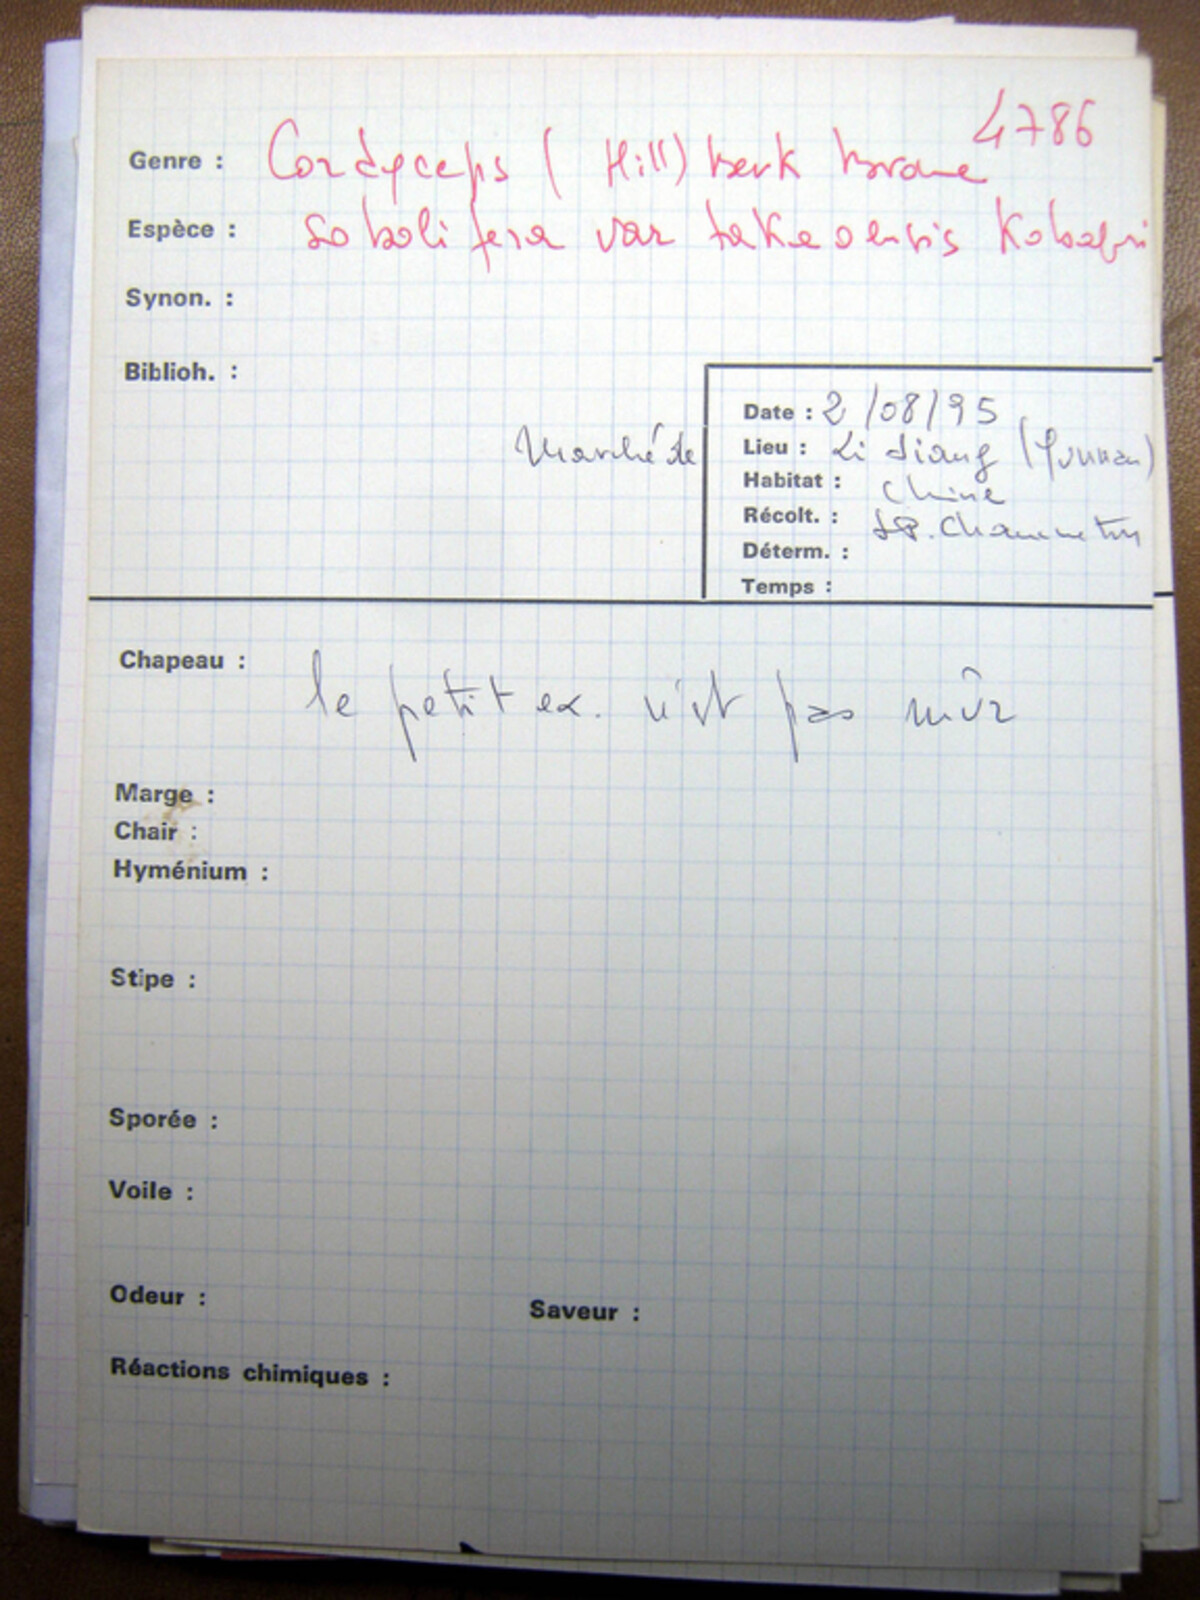 4786
Genre : Cordyceps (Hill) berk brome
Espèce : sobolifera var takaoensis Kobayi
Synon. :
Biblioh. :
Date : 2/08/95
Marché de Lieu : Li diang (Yunnan)
Habitat : Chine
Récolt. :
Déterm. :
Temps :
Chapeau : le petit ex. n'est pas mûr
Marge :
Chair :
Hyménium :
Stipe :
Sporée :
Voile :
Odeur : Saveur :
Réactions chimiques :